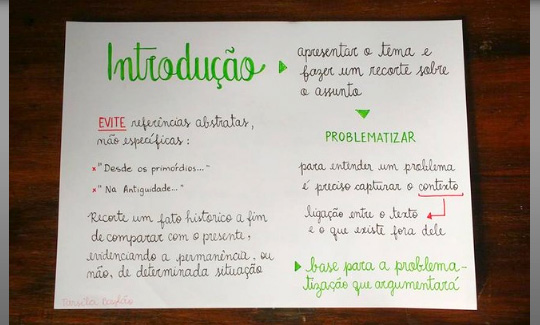 Introdução
apresentar o tema e
fazer um recorte sobre
o assunto
EVITE referências abstratas,
não específicas:
x "Desde os primórdios..."
x "Na Antiguidade..."
Recorte um fato histórico a fim
de comparar com o presente,
evidenciando a permanência, ou
não, de determinada situação
PROBLEMATIZAR
para entender um problema
é preciso capturar o contexto
ligação entre o texto
e o que existe fora dele
base para a problema-
tização que argumentará